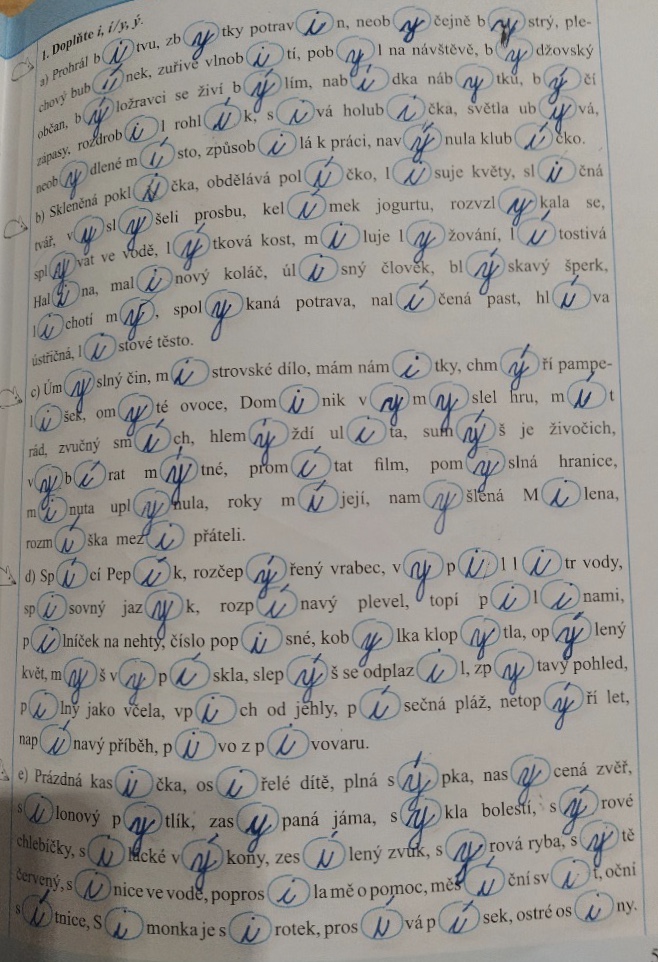 1. Doplňte i, í/y, ý.
a) Prohrál bitvu, zbytky potravin, neobyčejně bystrý, ple-
chový bubínek, zuřivé vlnobití, pobyl na návštěvě, bydžovský
občan, býložravci se živí býlím, nabídka nábytku, býčí
zápasy, rozdrobil rohlík, sivá holubička, světla ubývá,
neobydlené místo, způsobilá k práci, navýnula klubíčko.
b) Skleněná poklička, obdělává políčko, lisuje květy, sličná
tvář, vyslyšeli prosbu, kelímek jogurtu, rozvzlykala se,
splývat ve vodě, lýtková kost, miluje lyžování, lítostivá
Halina, malinový koláč, úlisný člověk, blýskavý šperk,
lichotí mý, spolykaná potrava, nalíčená past, hlíva
ústřičná, listové těsto.
c) Úmyslný čin, mistrovské dílo, mám námitky, chmýří pampe-
lišek, omyté ovoce, Dominik vymyslel hru, mít
rád, zvučný smích, hlemýždí ulita, sumýš je živočich,
vybírat mýtné, promítat film, pomyslná hranice,
minuta uplynula, roky míjejí, namyšlená Milena,
rozmíška mezi přáteli.
d) Spící Pepík, rozčepýřený vrabec, vypil litr vody,
spisovný jazyk, rozpínavý plevel, topí pilinami,
pilníček na nehty, číslo popisné, kobylka klopytla, opýlený
květ, myš vypískla, slepýš se odplazil, zpytavý pohled,
pilný jako včela, vpich od jehly, písečná pláž, netopýří let,
napínavý příběh, pivo z pivovaru.
e) Prázdná kasička, osiřelé dítě, plná sýpka, nasycená zvěř,
silonový pytlík, zasypaná jáma, sykla bolestí, sýrové
chlebíčky, silácké výkony, zesílený zvuk, syrová ryba, sytě
červený, sinice ve vodě, poprosila mě o pomoc, měsíční svit, oční
sítnice, Simonka je sirotek, prosívá písek, ostré osiny.
5